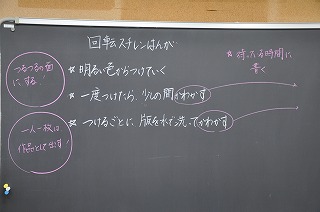 回転スチレンはんが
つるつるの面
にする!
☆ 明るい色からつけていく
☆ 一度つけたら、少しの間かわかす
☆ つけるごとに、版を水で洗ってかわかす
☆ 待っている時間に
書く
一人一枚は
作品として出す!